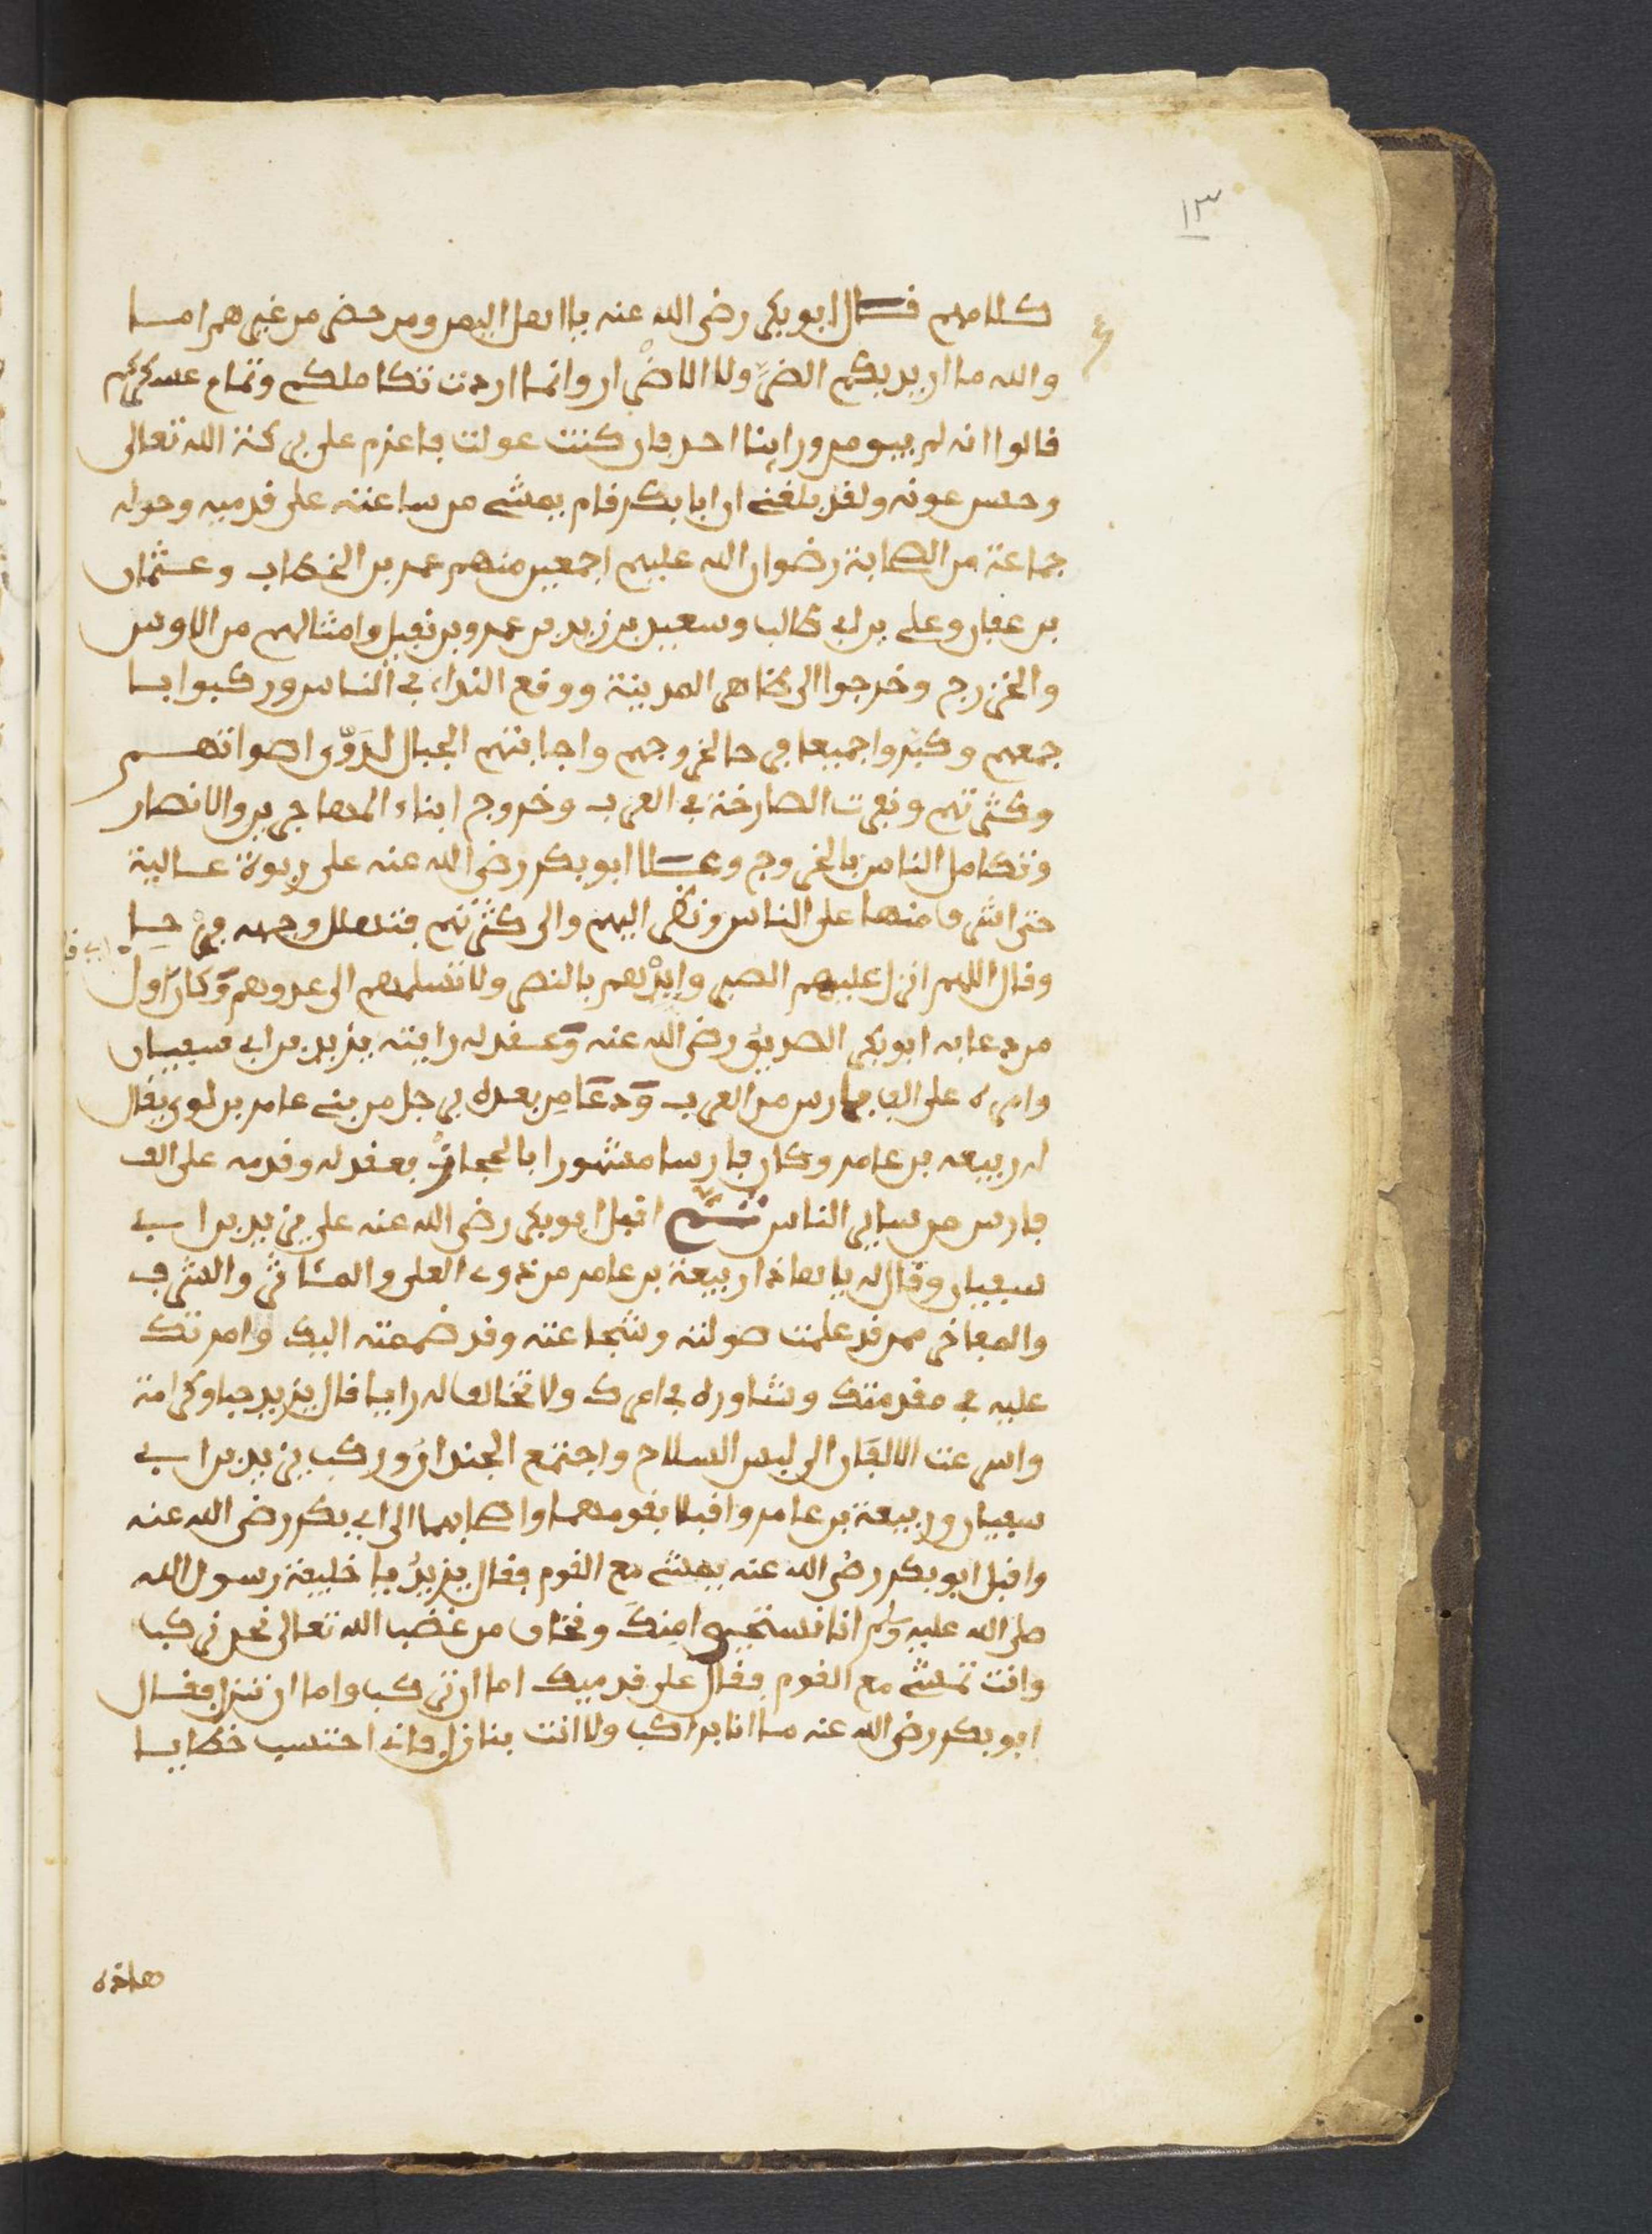 ١٣
كلامهم فقال ابو بكر رضي الله عنه يا اهل اليمن ومن حضر من غيرهم اما
والله ما اريد بكم الضر ولا الاضرار وانما اردت تكاملكم وتمام عسكركم
قالوا انه لم يبق من وراينا احد فان كنت عولت فاعزم على بركة الله تعالى
وحسن عونه ولقد بلغني ان ابا بكر قام يمشي من ساعته على قدميه وحوله
جماعة من الصحابة رضوان الله عليهم اجمعين منهم عمر بن الخطاب وعثمان
بن عفان وعلي بن ابي طالب وسعيد بن زيد بن عمرو بن نفيل وامثالهم من الاوس
والخزرج وخرجوا الى ظاهر المدينة ووقع النداء في الناس وركبوا با
جمعهم وكبروا جميعا في حال خروجهم واجابتهم الجبال لدوي اصواتهم
وكثرتهم ونعرت الصارخة في العرب وخروج ابناء المهاجرين والانصار
وتكامل الناس بالخروج وعلا ابو بكر رضي الله عنه على ربوة عالية
حتى اشرف منها على الناس ونظر اليهم والى كثرتهم فتهلل وجهه فرحا
وقال اللهم انزل عليهم الصبر وايدهم بالنصر ولا تسلمهم الى عدوهم وكان اول
من دعا به ابو بكر الصديق رضي الله عنه وعقد له راية يزيد بن ابي سفيان
وامره على الف فارس من العرب ودعا من بعده برجل من بني عامر بن لوي يقال
له ربيعه بن عامر وكان فارسا مشهورا بالحجاز فعقد له وقدمه على الف
فارس من ساير الناس ثم اقبل ابو بكر رضي الله عنه على يزيد بن ابي
سفيان وقال له يا هاذا ربيعة بن عامر من ذوي العلى والمآثر والشرف
والمفاخر ممن قد علمت صولته وشجاعته وقد ضممته اليك وامرتك
عليه في مقدمتك وشاوره في امرك ولا تخالف له رايا قال يزيد حبا وكرامة
واسرعت الالفان الى لبس السلاح واجتمع الجندان وركب يزيد بن ابي
سفيان وربيعة بن عامر واقبلا بقومهما واصحابهما الى ابي بكر رضي الله عنه
واقبل ابو بكر رضي الله عنه يمشي مع القوم فقال يزيد يا خليفة رسول الله
صلى الله عليه وسلم انا نستحيوا منك ونخاف من غضب الله تعالى نحن نركب
وانت تمشي مع القوم فقال على قدميك اما ان تركب واما ان ننزل فقال
ابو بكر رضي الله عنه ما انا براكب ولا انت بنازل فاني احتسب خطايا
هاذه